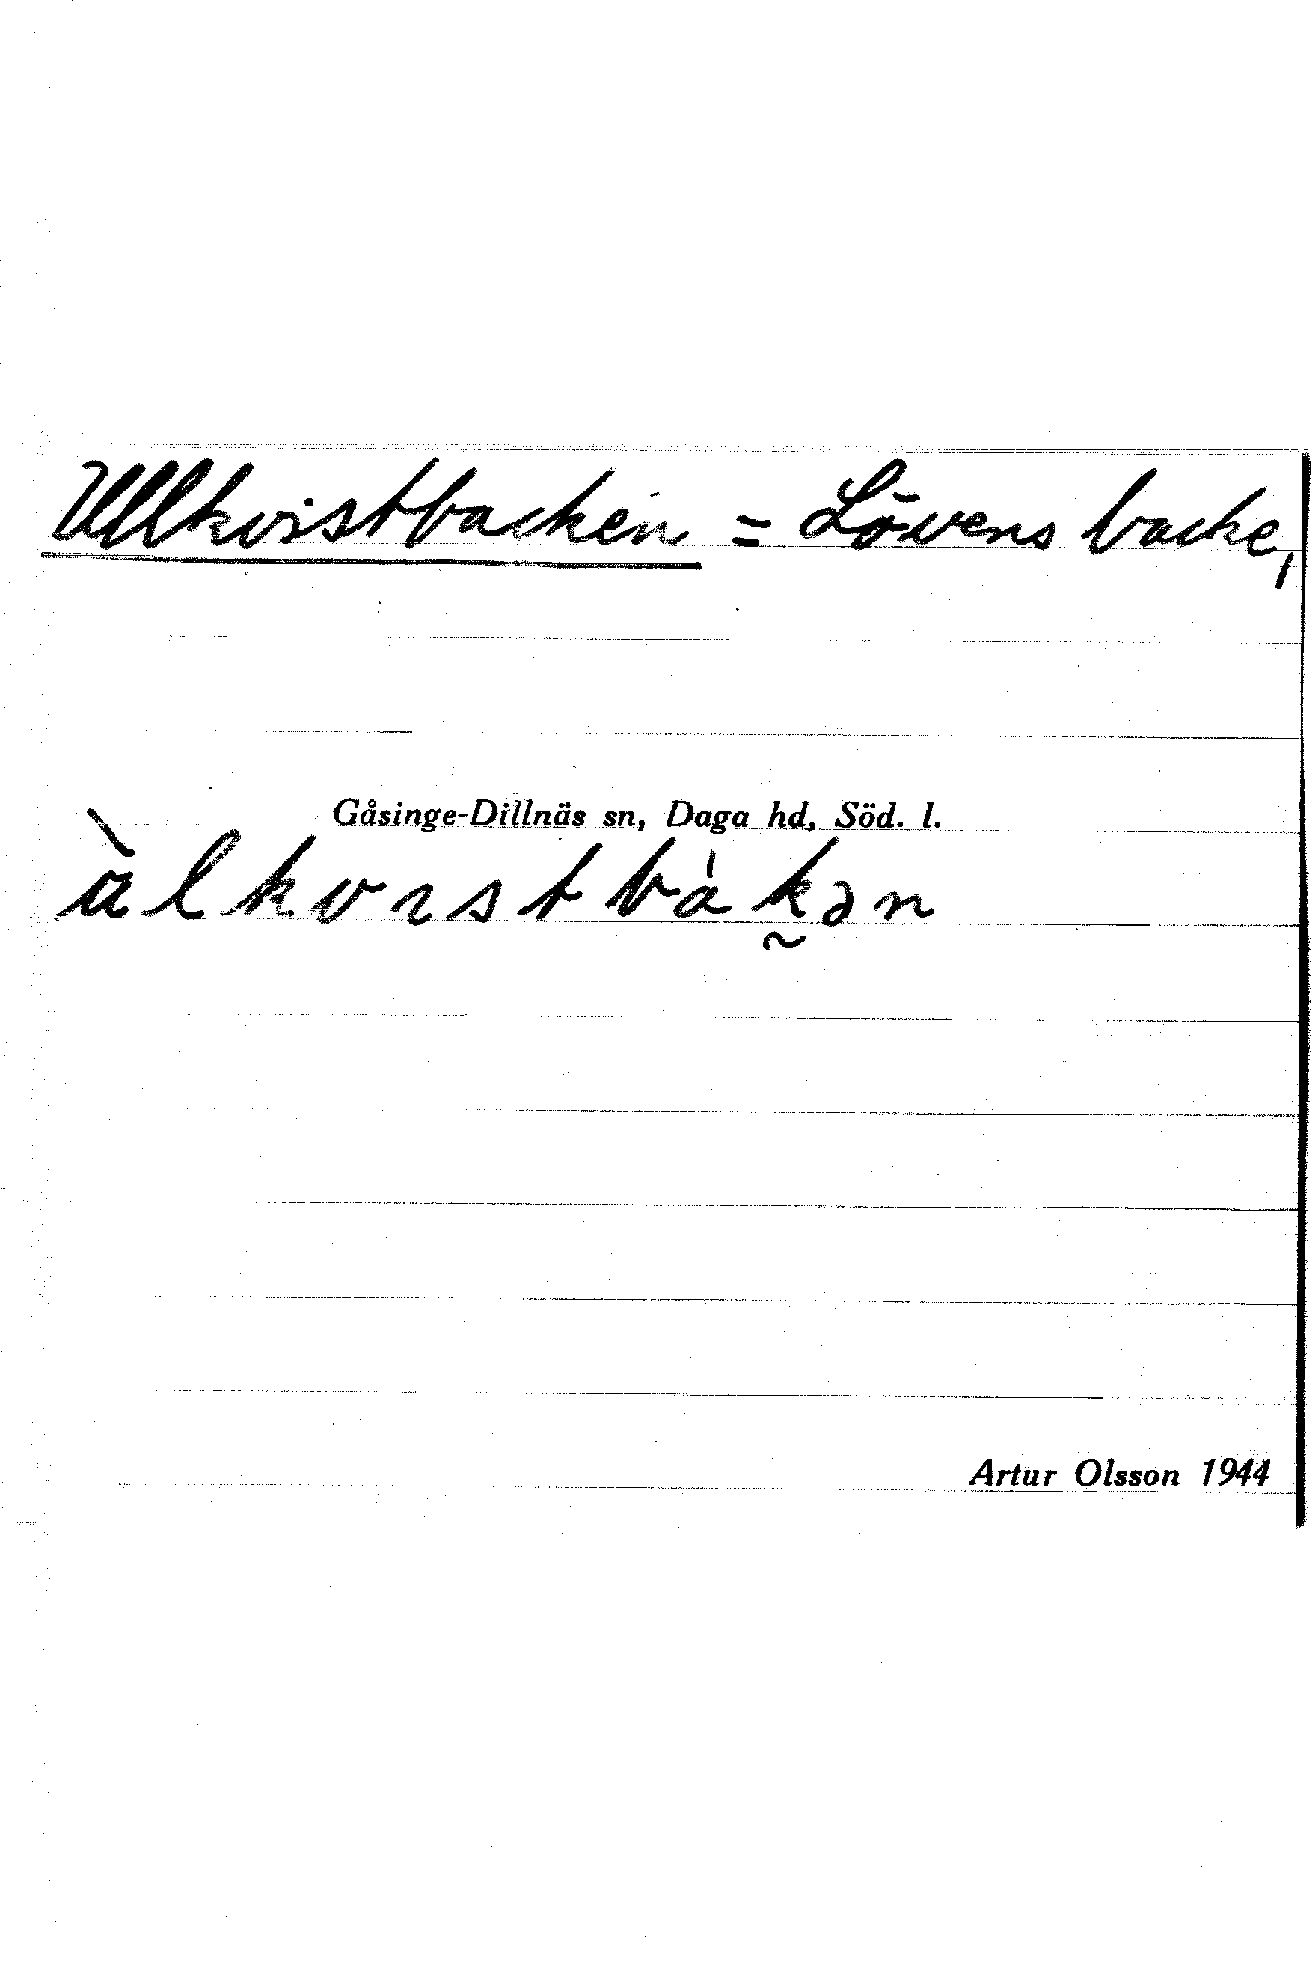 Ullkvistbacken = Lövens backe,
Gåsinge-Dillnäs sn, Daga hd, Söd. l.
àlkvıstbàk̰ən
Artur Olsson 1944